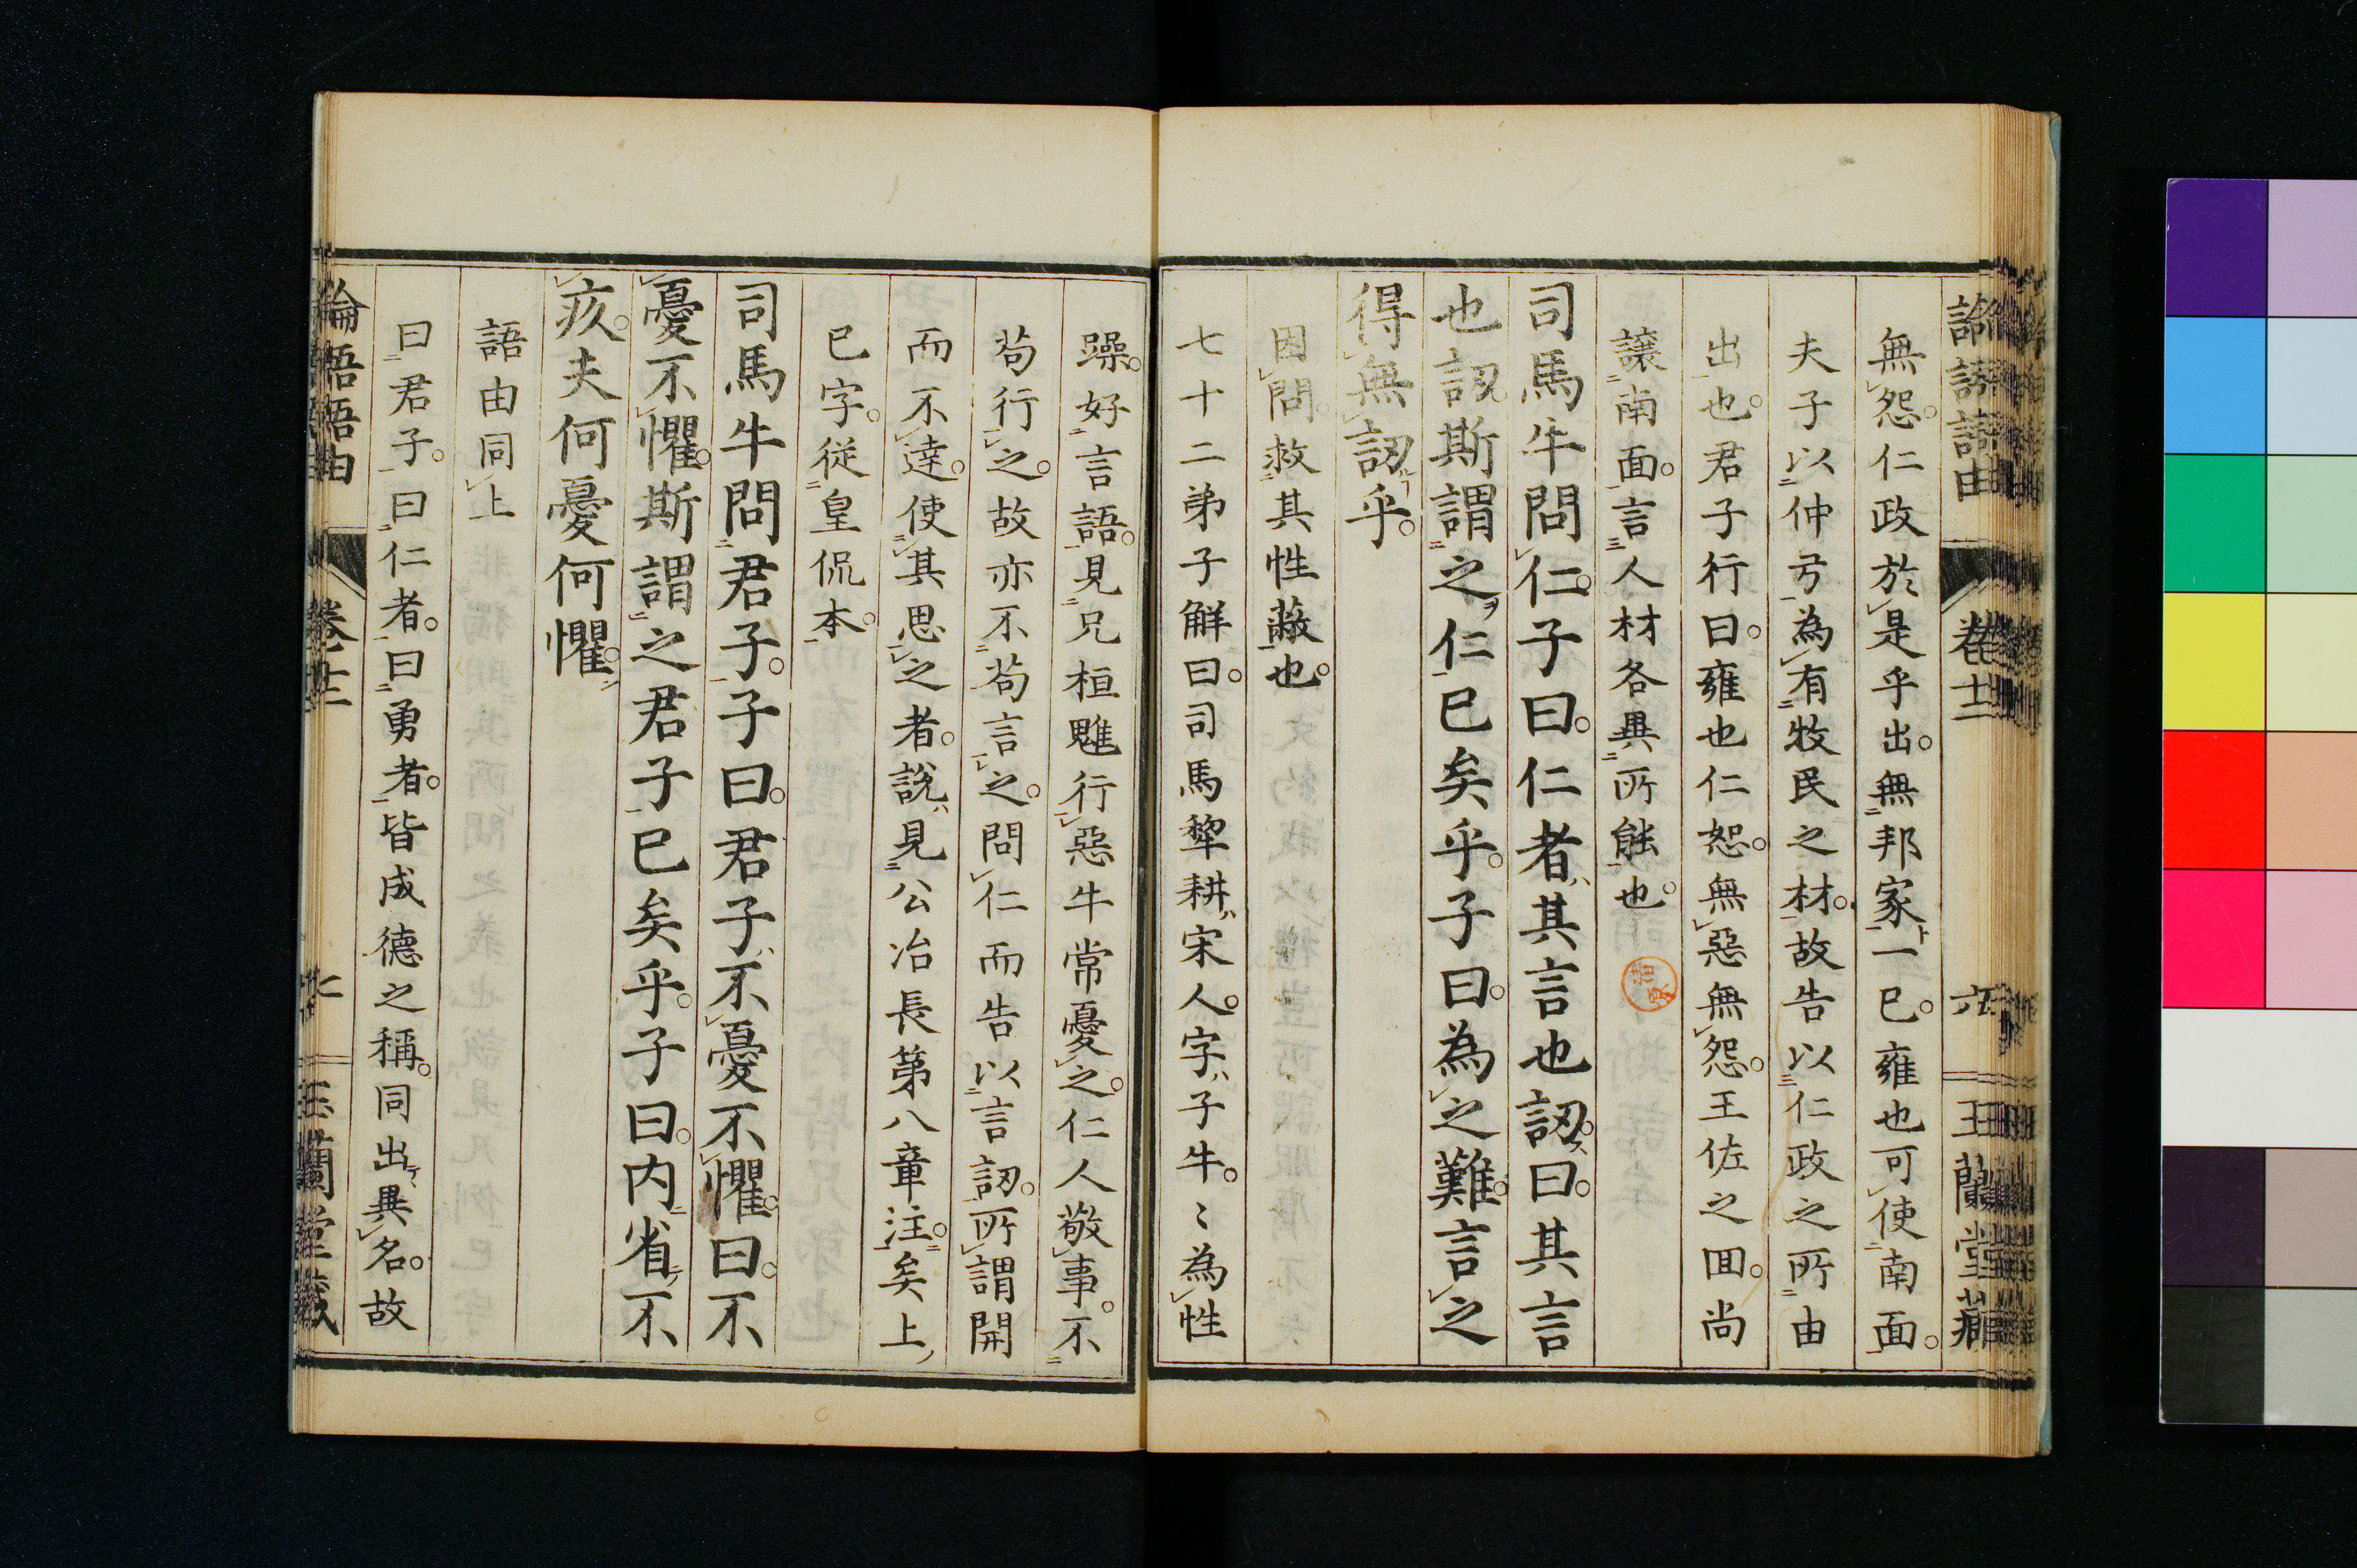 無怨。仁政於是乎出。無邦家一已。雍也可使南面。
夫子以仲弓為有牧民之材。故告以仁政之所由
出也。君子行曰。雍也仁恕。無惡無怨。王佐之回。尚
讓南面。言人材各異所能也。
司馬牛問仁。子曰。仁者其言也訒。曰。其言
也訒。斯謂之仁已矣乎。子曰。為之難。言之
得無訒乎。
因問。救其性蔽也。
七十二弟子解曰。司馬犂耕。宋人。字子牛。〻為性
躁。好言語。見兄桓魋行惡。牛常憂之。仁人敬事。不
苟行之。故亦不苟言之。問仁而告以言訒。所謂開
而不達。使其思之者。說見公冶長第八章注。矣上
已字。從皇侃本。
司馬牛問君子。子曰。君子不憂不懼。曰。不
憂不懼。斯謂之君子已矣乎。子曰。內省不
疚。夫何憂何懼。
語由同上
曰君子。曰仁者。曰勇者。皆成德之稱。同出異名。故
論語語由 卷十二 七 玉蘭堂藏